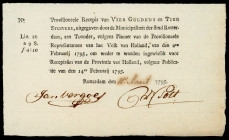 No Provisioneele Recepis van VIER GULDENS en TIEN
STUIVERS, uitgegeven door de Municipaliteit der Stad Rotter-
dam, aan Toonder, volgens Placaat van de Provisioneele
Representanten van het Volk van Holland, van den 4en
February 1795, om weder te worden ingewisseld voor
Recepissen van de Provincie van Holland, volgens Publica-
tie van den 14en February 1795.
Rotterdam den Maart 1795.